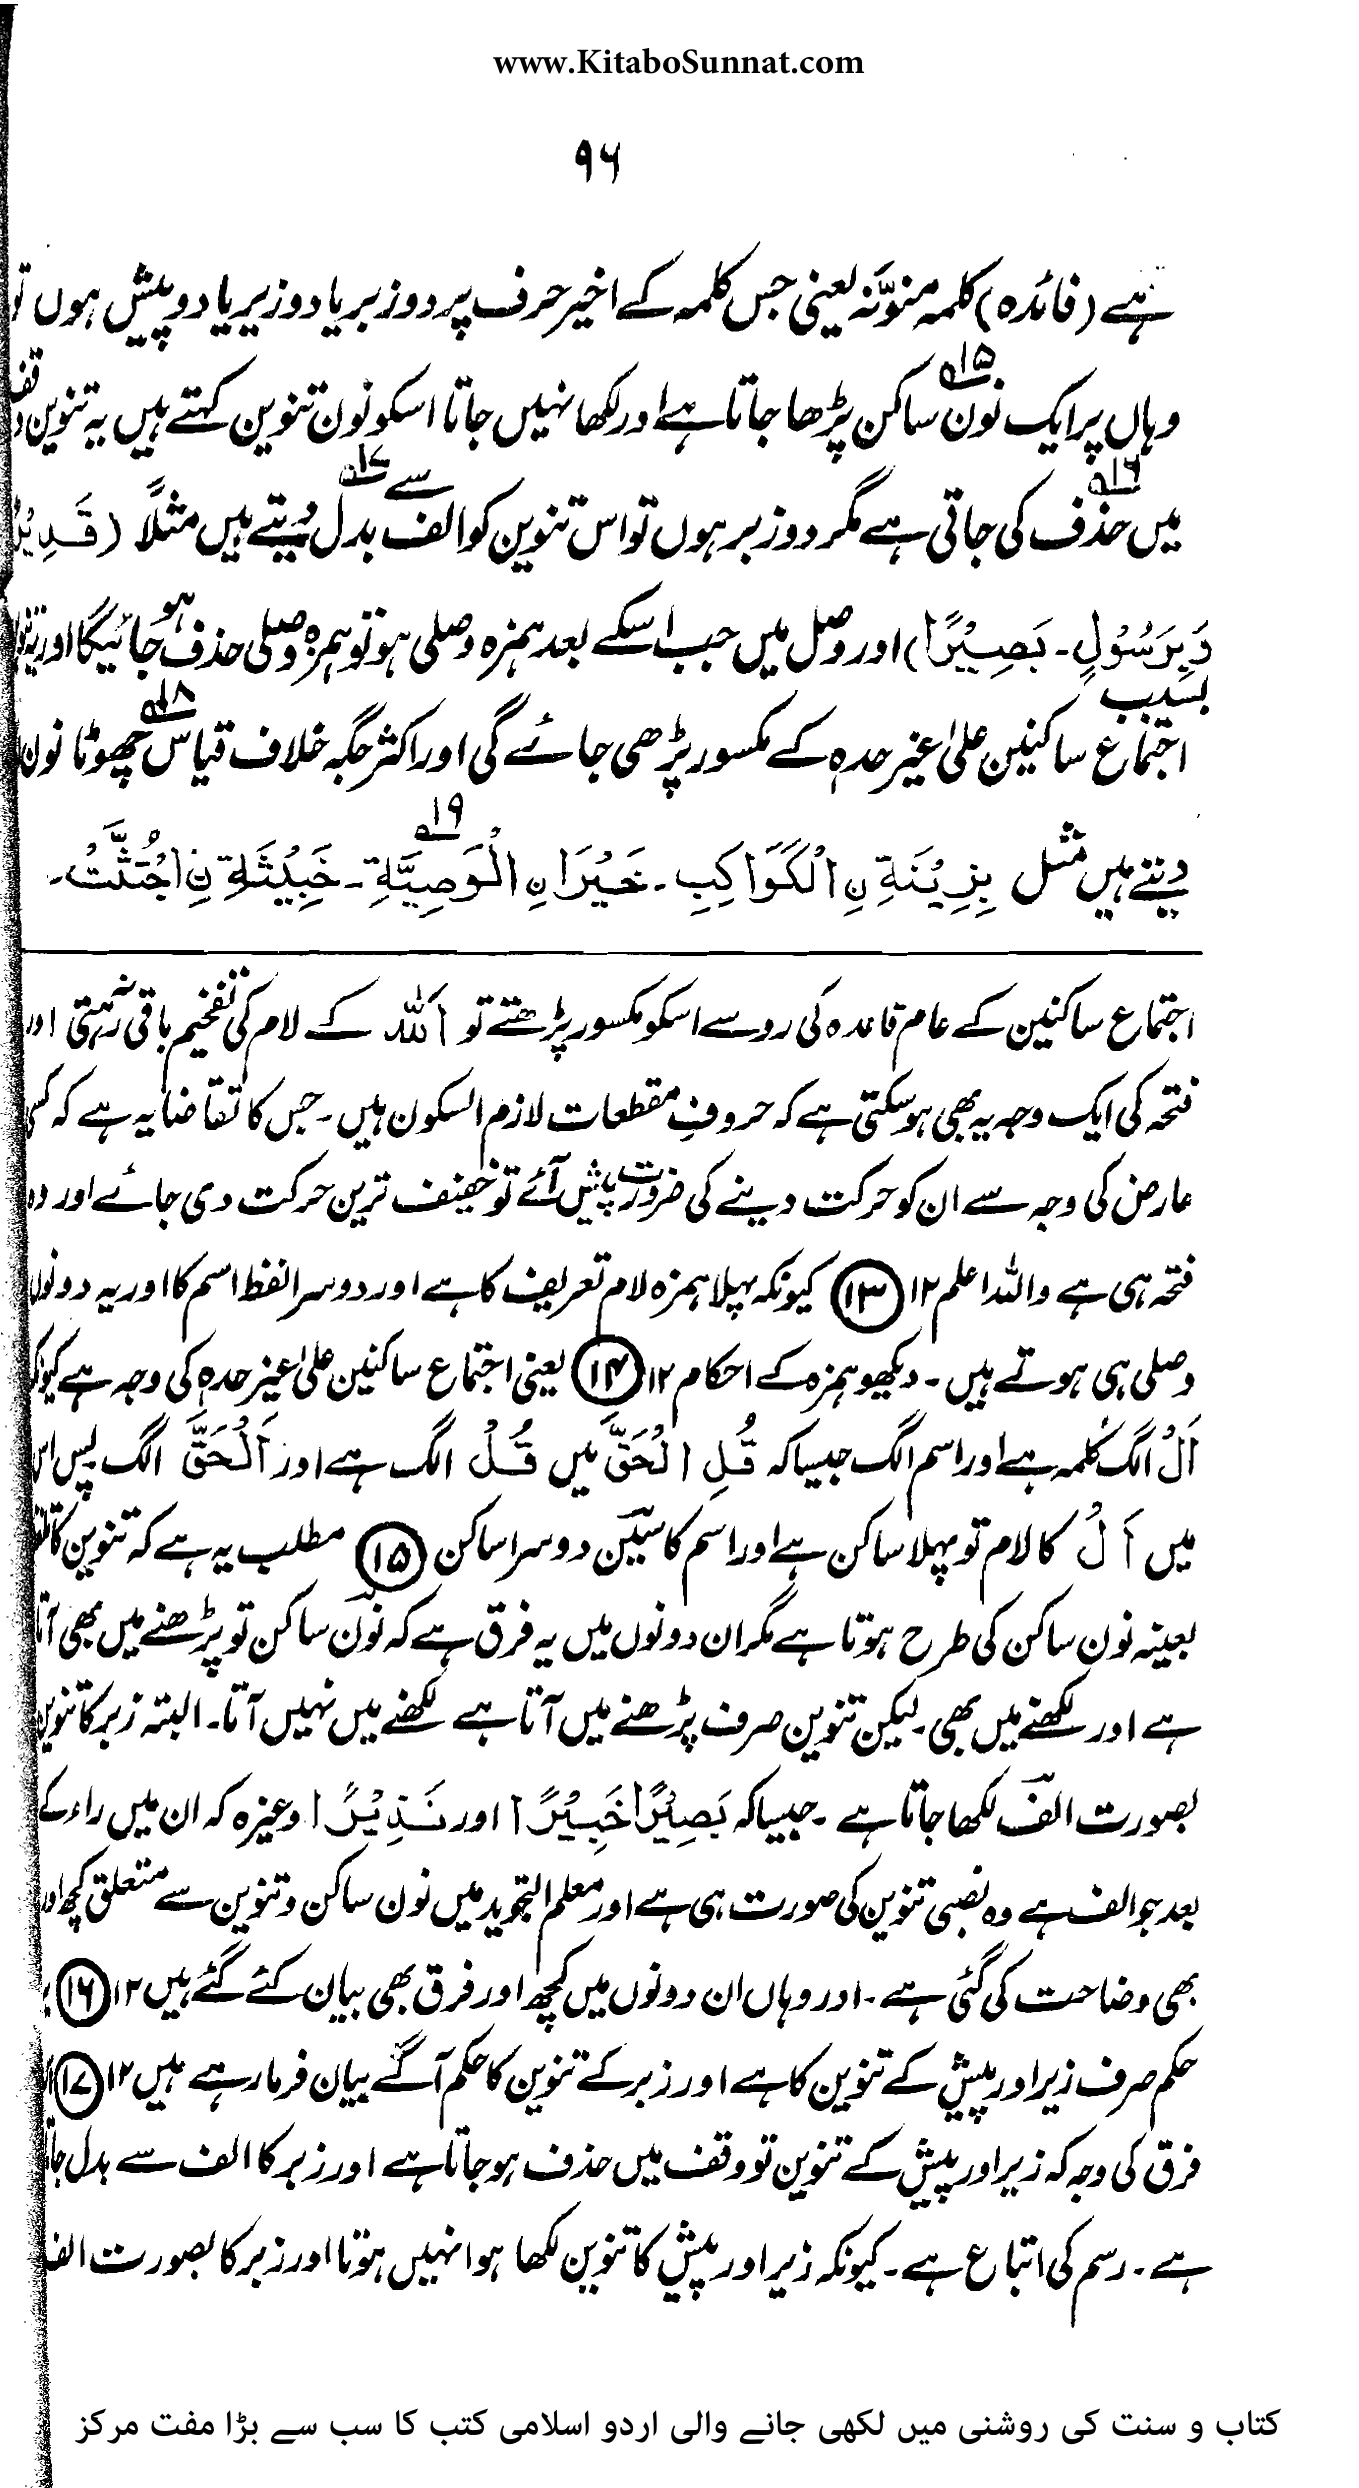 www.KitaboSunnat.com
۹۶
ہے (فائدہ) کلمہ منوّنہ یعنی جس کلمہ کے اخیر حرف پر دو زبر یا دو زیر یا دو پیش ہوں تو
وہاں پر ایک نون ۱۵؎ ساکن پڑھا جاتا ہے اور لکھا نہیں جاتا اسکو نون تنوین کہتے ہیں یہ تنوین وقف
میں حذف ۱۶؎ کی جاتی ہے مگر دو زبر ہوں تو اس تنوین کو الف سے ۱۷؎ بدل دیتے ہیں مثلاً (قَدِیْرٌ
وَبِرَسُوْلٍ۔ بَصِیْرًا) اور وصل میں جب اسکے بعد ہمزہ وصلی ہو تو ہمزہ وصلی حذف ہو جائیگا اور یہ تنوین
بسبب
اجتماع ساکنین علیٰ غیر حدہ کے مکسور پڑھی جائے گی اور اکثر جگہ خلاف قیاس ۱۸؎ چھوٹا نون
دیتے ہیں مثل بِزِیْنَةِ نِ الْکَوَاکِبِ۔ خَیْرَا نِ الْوَصِیَّةِ ۱۹؎۔ خَبِیْثَةِ نِ اجْتُثَّتْ۔
اجتماع ساکنین کے عام قاعدہ کی رو سے اسکو مکسور پڑھتے تو اَللّٰہ کے لام کی تفخیم باقی نہ رہتی اور
فتحہ کی ایک وجہ یہ بھی ہو سکتی ہے کہ حروفِ مقطعات لازم السکون ہیں۔ جس کا تقاضا یہ ہے کہ کسی
عارض کی وجہ سے ان کو حرکت دینے کی ضرورت پیش آئے تو خفیف ترین حرکت دی جائے اور وہ
فتحہ ہی ہے واللہ اعلم ۱۲ (۱۳) کیونکہ پہلا ہمزہ لام تعریف کا ہے اور دوسرا لفظ اسم کا اور یہ دونوں
وصلی ہی ہوتے ہیں۔ دیکھو ہمزہ کے احکام ۱۲ (۱۴) یعنی اجتماع ساکنین علیٰ غیر حدہ کی وجہ سے کیونکہ
اَلْ الگ کلمہ ہے اور اسم الگ جیسا کہ قُلِ الْحَقُّ میں قُلْ الگ ہے اور اَلْحَقُّ الگ پس اس
میں اَلْ کا لام تو پہلا ساکن ہے اور اسم کا سین دوسرا ساکن (۱۵) مطلب یہ ہے کہ تنوین کا تلفظ
بعینہ نون ساکن کی طرح ہوتا ہے مگر ان دونوں میں یہ فرق ہے کہ نون ساکن تو پڑھنے میں بھی آتا
ہے اور لکھنے میں بھی۔ لیکن تنوین صرف پڑھنے میں آتا ہے لکھنے میں نہیں آتا۔ البتہ زبر کا تنوین
بصورت الف لکھا جاتا ہے۔ جیسا کہ بَصِیْرًا خَبِیْرًا اور نَذِیْرًا وغیرہ کہ ان میں راء کے
بعد جو الف ہے وہ نصبی تنوین کی صورت ہی ہے اور معلم التجوید میں نون ساکن و تنوین سے متعلق کچھ اور
بھی وضاحت کی گئی ہے۔ اور وہاں ان دونوں میں کچھ اور فرق بھی بیان کئے گئے ہیں ۱۲ (۱۶)
حکم صرف زیر اور پیش کے تنوین کا ہے اور زبر کے تنوین کا حکم آگے بیان فرما رہے ہیں ۱۲ (۱۷)
فرق کی وجہ کہ زیر اور پیش کے تنوین تو وقف میں حذف ہو جاتا ہے اور زبر کا الف سے بدل جاتا
ہے۔ رسم کی اتباع ہے۔ کیونکہ زیر اور پیش کا تنوین لکھا ہوا نہیں ہوتا اور زبر کا بصورت الف
کتاب و سنت کی روشنی میں لکھی جانے والی اردو اسلامی کتب کا سب سے بڑا مفت مرکز